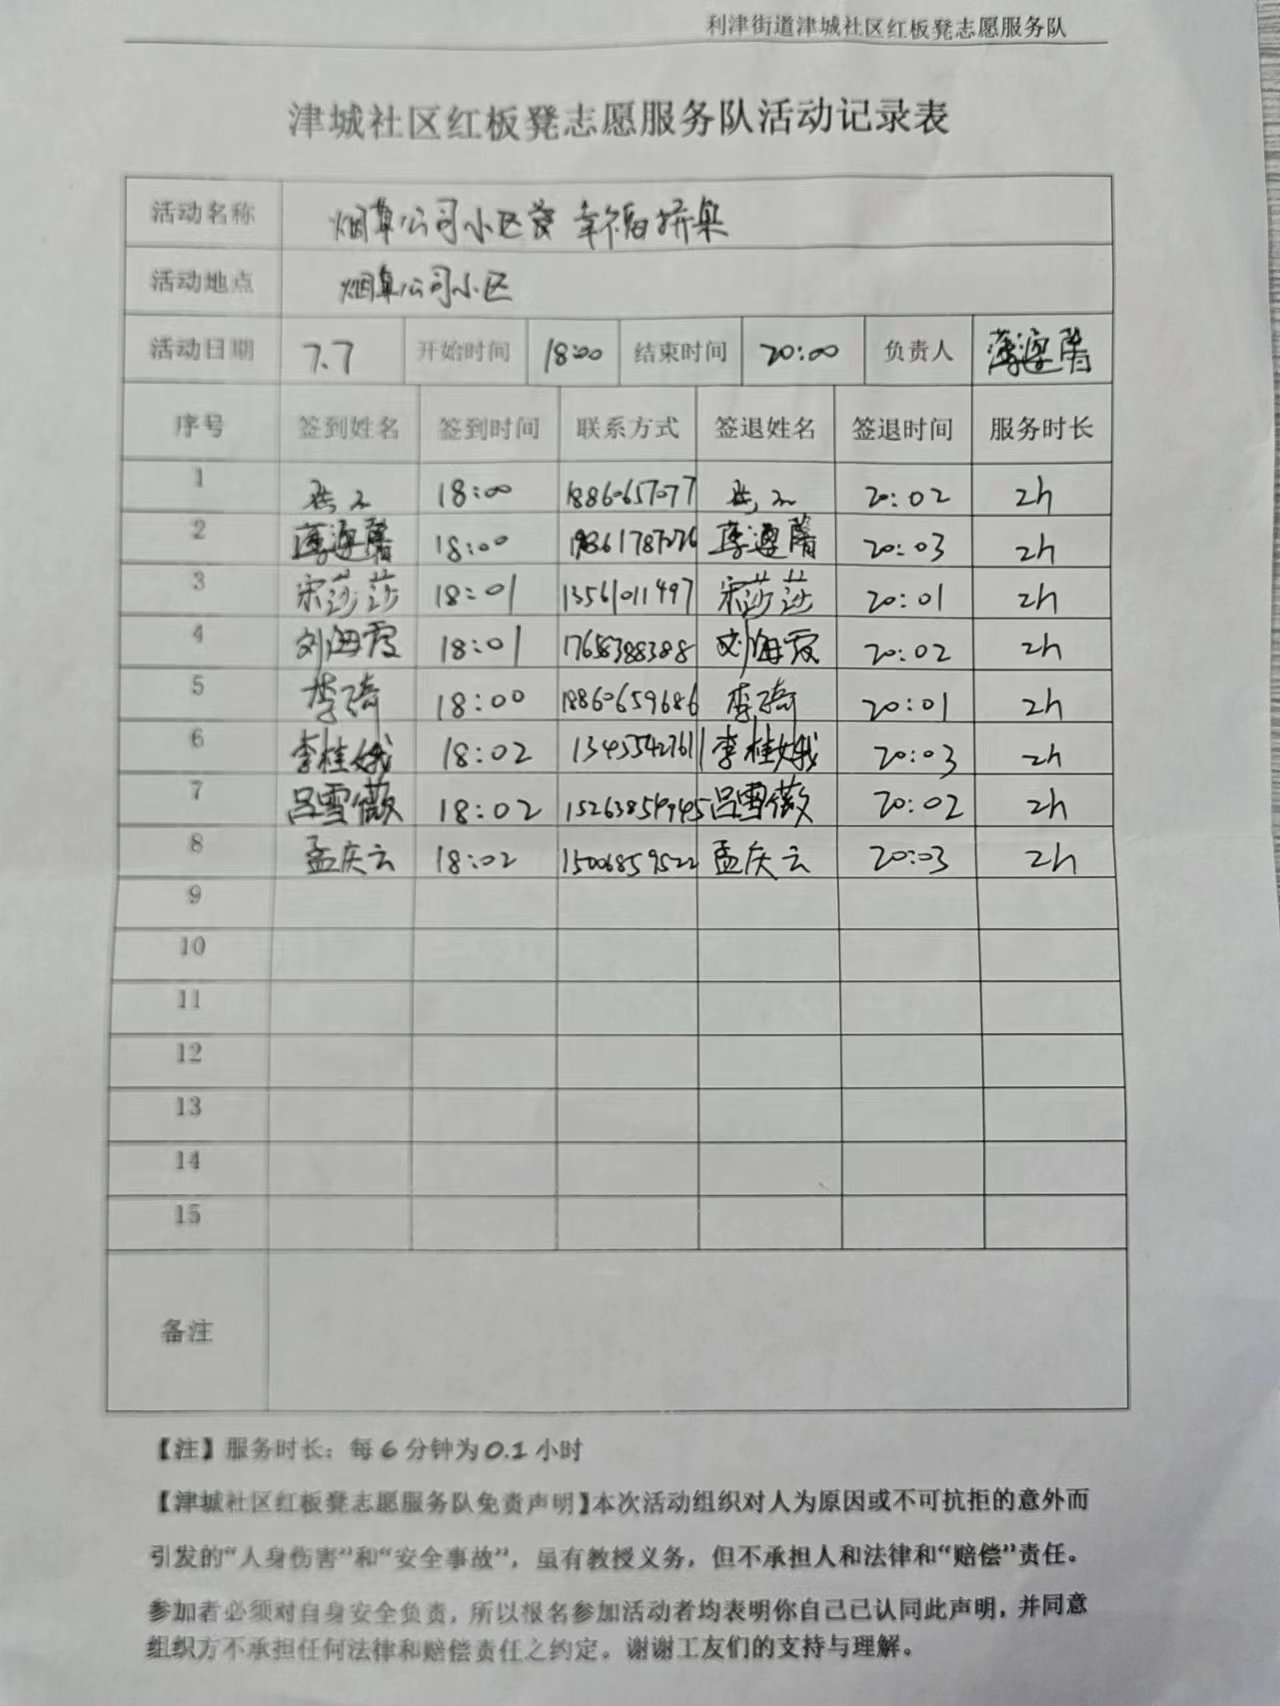 利津街道津城社区红板凳志愿服务队
津城社区红板凳志愿服务队活动记录表
活动名称 烟草公司小区 幸福桥集
活动地点 烟草公司小区
活动日期 7.7 开始时间 18:00 结束时间 20:00 负责人
序号 签到姓名 签到时间 联系方式 签退姓名 签退时间 服务时长
1 18:00 18860657077 20:02 2h
2 18:00 20:03 2h
3 宋莎莎 18:01 13561011497 宋莎莎 20:01 2h
4 刘海霞 18:01 17658388388 刘海霞 20:02 2h
5 李琦 18:00 18860659686 李琦 20:01 2h
6 李桂娥 18:02 13455427611 李桂娥 20:03 2h
7 吕雪薇 18:02 15263854945 吕雪薇 20:02 2h
8 孟庆云 18:02 15006859522 孟庆云 20:03 2h
9
10
11
12
13
14
15
备注
【注】服务时长：每6分钟为0.1小时
【津城社区红板凳志愿服务队免责声明】本次活动组织对人为原因或不可抗拒的意外而
引发的“人身伤害”和“安全事故”，虽有教授义务，但不承担人和法律和“赔偿”责任。
参加者必须对自身安全负责，所以报名参加活动者均表明你自己已认同此声明，并同意
组织方不承担任何法律和赔偿责任之约定。谢谢工友们的支持与理解。